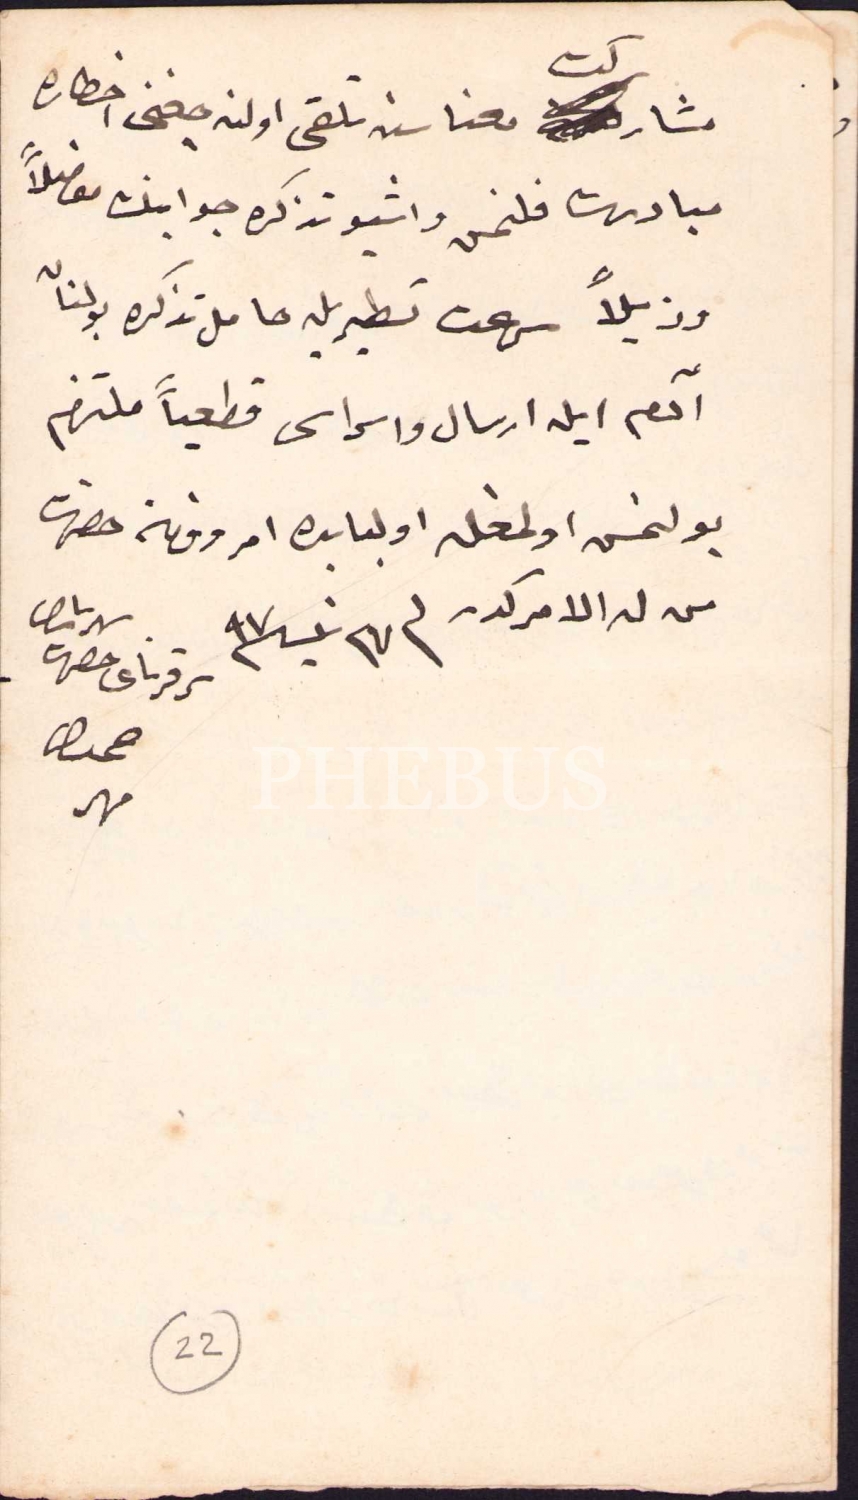 كت
مشار معناسنه تلقى اولنه جغنى اخطاره
مبادرت قلنمش واشبو تذكره جوابنك مفصلاً
وذيلاً سرعت تسطيريله حامل تذكره بولنان
آدم ايله ارسال واسراسى قطعياً ملتزم
بولنمش اولمغله اولبابده امر وفرمان حضرت
من له الامركدر ٩٧
سرقرناى حضرت
مهر
PHEBUS
22